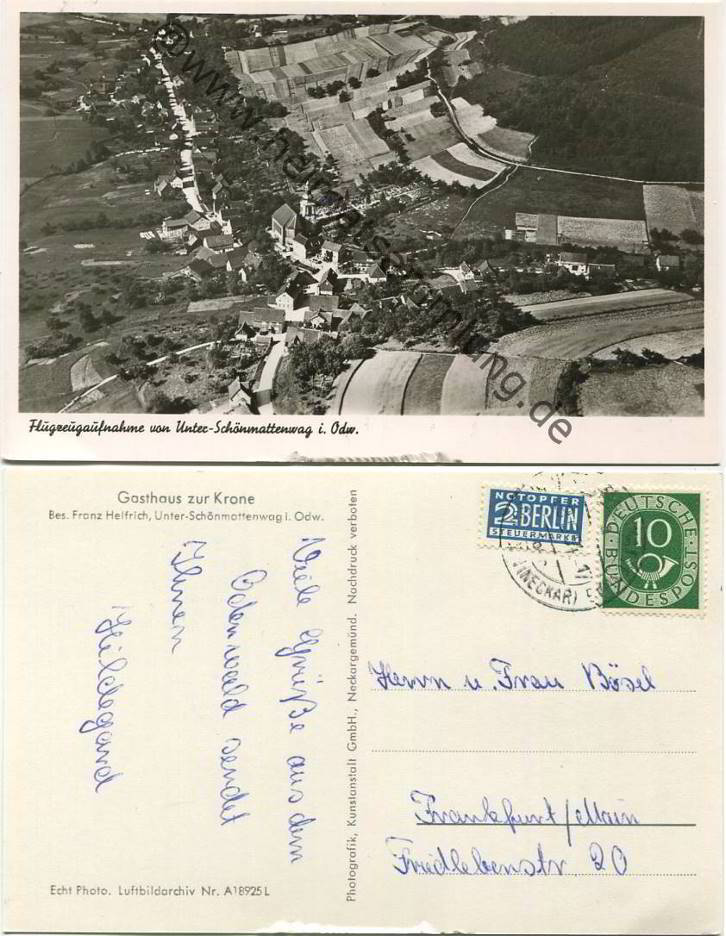 © www.heimatsammlung.de
Flugzeugaufnahme von Unter-Schönmattenwag i. Odw.
Gasthaus zur Krone
Bes. Franz Helfrich, Unter-Schönmattenwag i. Odw.
Viele Grüße aus dem
Odenwald sendet
Ihnen
Hildegard
Echt Photo. Luftbildarchiv Nr. A18925L
Photografik, Kunstanstalt GmbH., Neckargemünd. Nachdruck verboten
NOTOPFER
2 BERLIN
STEUERMARKE
DEUTSCHE
10
BUNDESPOST
(NECKAR)
Herrn u. Frau Bösel
Frankfurt/Main
Friedlebenstr. 20